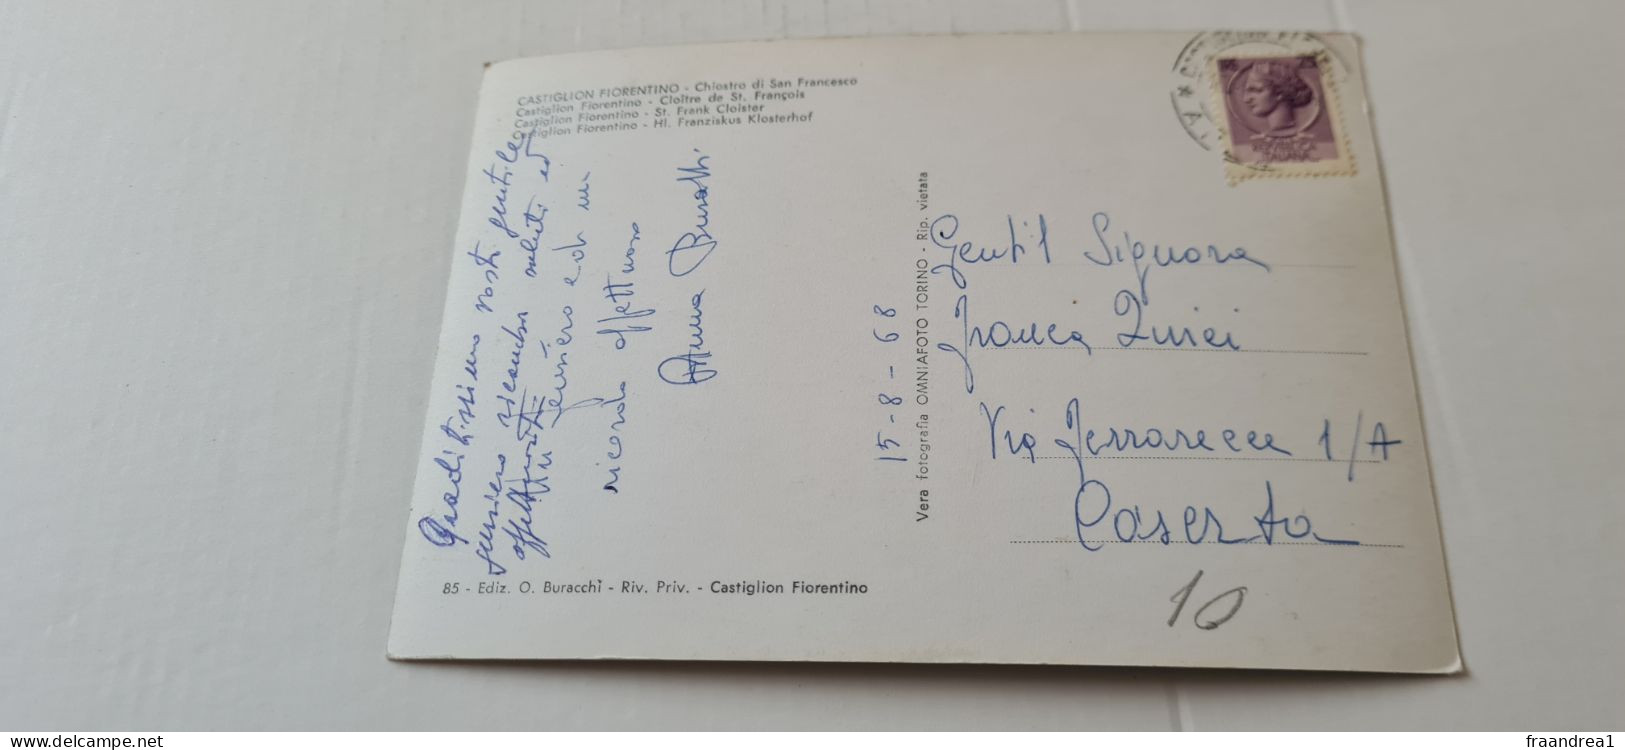 CASTIGLION FIORENTINO - Chiostro di San Francesco
Castiglion Fiorentino - Cloître de St. François
Castiglion Fiorentino - St. Frank Cloister
Castiglion Fiorentino - Hl. Franziskus Klosterhof
Graditissimo gentile
pensiero saluti ed
affettuosità
pensiero ed un
ricordo affettuoso
Anna
15-8-68
Vera fotografia OMNIAFOTO TORINO - Rip. vietata
REPUBBLICA
ITALIANA
Gentil Signora
Franca
Via 1/A
Caserta
10
85 - Ediz. O. Buracchì - Riv. Priv. - Castiglion Fiorentino
delcampe.net
fraandrea1